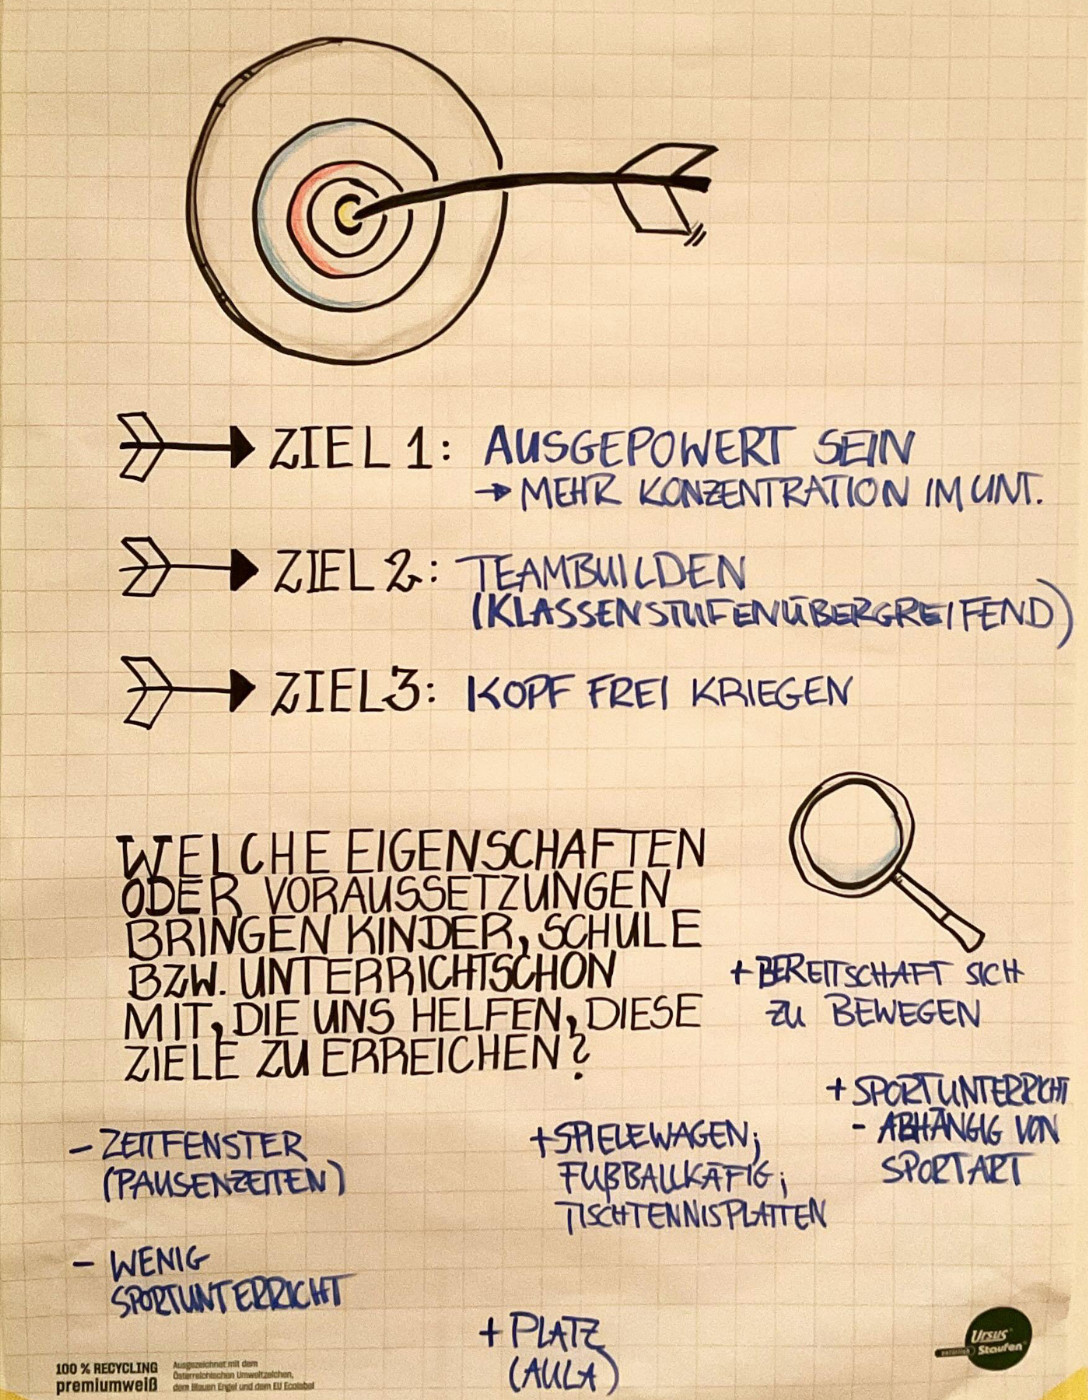 ZIEL 1: AUSGEPOWERT SEIN
→ MEHR KONZENTRATION IM UNT.
ZIEL 2: TEAMBUILDEN
(KLASSENSTUFENÜBERGREIFEND)
ZIEL 3: KOPF FREI KRIEGEN
WELCHE EIGENSCHAFTEN
ODER VORAUSSETZUNGEN
BRINGEN KINDER, SCHULE
BZW. UNTERRICHT SCHON
MIT, DIE UNS HELFEN, DIESE
ZIELE ZU ERREICHEN?
+ BEREITSCHAFT SICH
ZU BEWEGEN
+ SPORTUNTERRICHT
- ABHÄNGIG VON
SPORTART
- ZEITFENSTER
(PAUSENZEITEN)
+ SPIELEWAGEN;
FUßBALLKÄFIG;
TISCHTENNISPLATTEN
- WENIG
SPORTUNTERRICHT
+ PLATZ
(AULA)
100 % RECYCLING
premiumweiß
Ausgezeichnet mit dem
Österreichischen Umweltzeichen,
dem Blauen Engel und dem EU Ecolabel
Ursus
Staufen